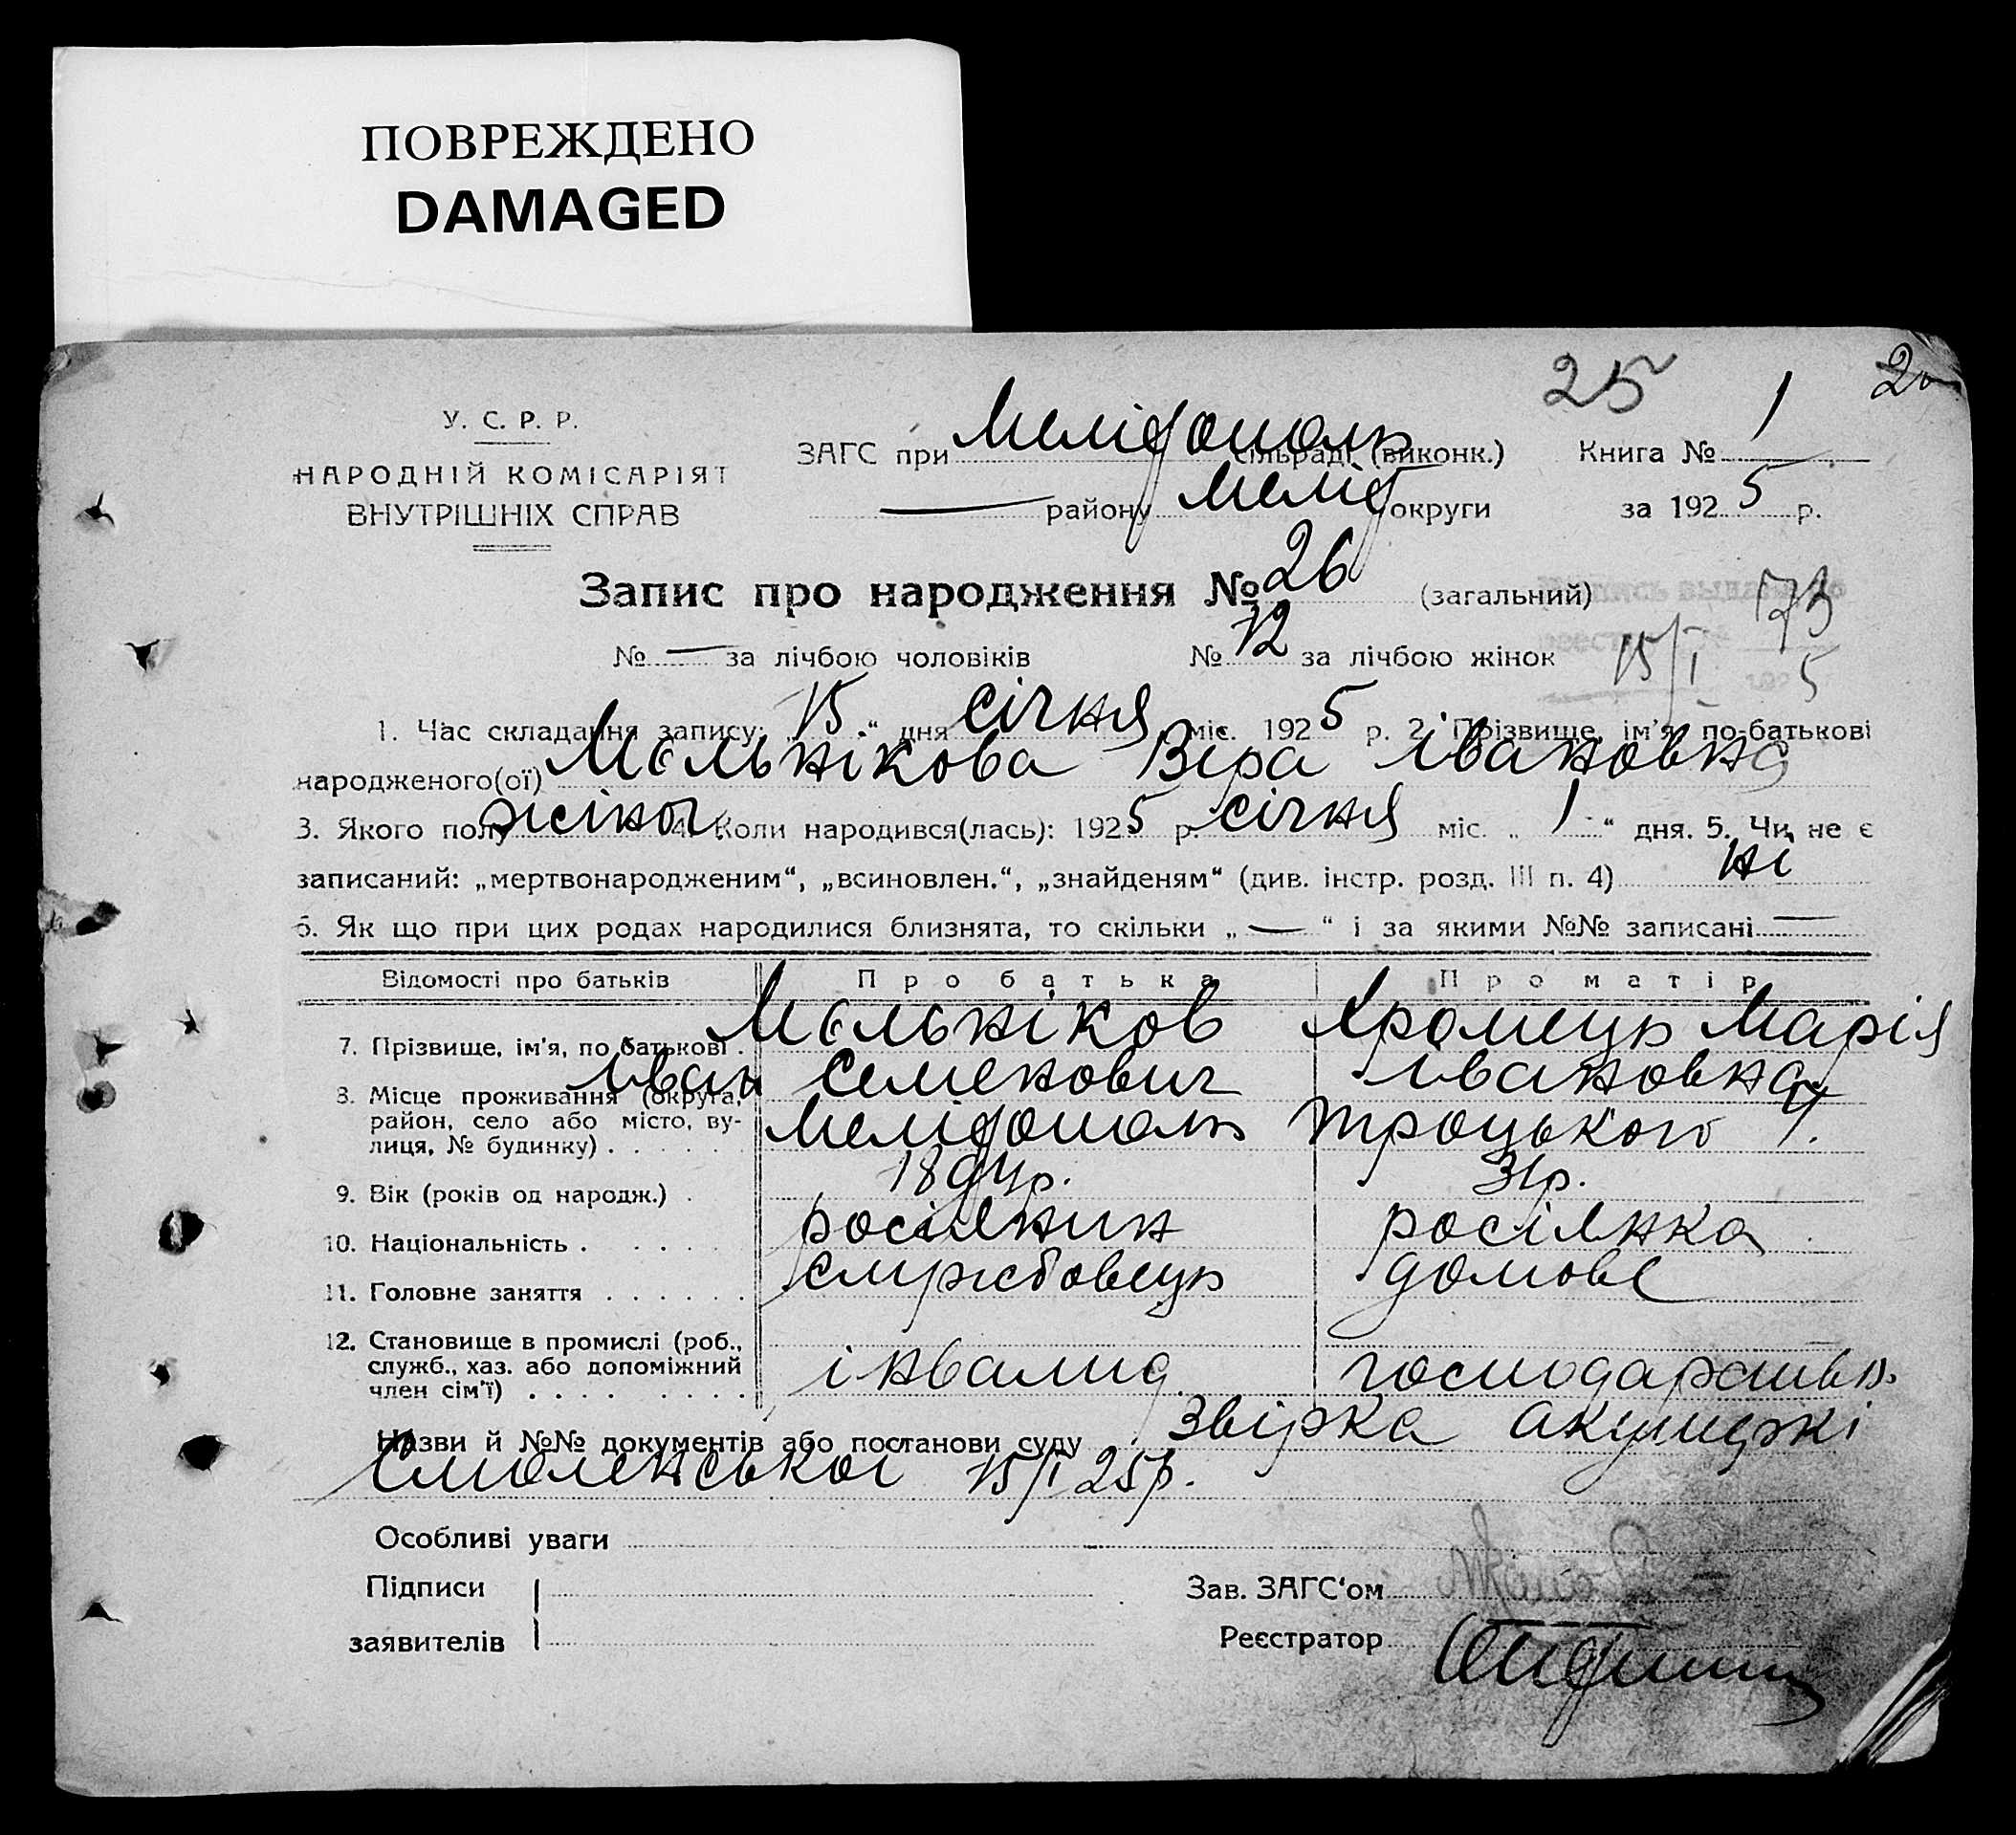 ПОВРЕЖДЕНО
DAMAGED
25 1 2
У. С. Р. Р.
НАРОДНІЙ КОМІСАРІЯТ
ВНУТРІШНІХ СПРАВ
ЗАГС при Мелітополь сільраді (виконк.) Книга № 1
— району Меліт округи за 1925 р.
Запис про народження № 26 (загальний) 73
№ — за лічбою чоловіків № 12 за лічбою жінок 15/I 5
1. Час складання запису: „15“ дня січня міс. 1925 р. 2. Прізвище, ім'я, по-батькові
народженого(ої) Мельнікова Віра Івановна
3. Якого полу жіноч. 4. Коли народився(лась): 1925 р. січня міс. „1“ дня. 5. Чи не є
записаний: „мертвонародженим“, „всиновлен.“, „знайденям“ (див. інстр. розд. III п. 4) ні
6. Як що при цих родах народилися близнята, то скільки „—“ і за якими №№ записані —
Відомості про батьків Про батька Про матір
7. Прізвище, ім'я, по батькові . Мельніков Хромець Марія
Іван Семенович Івановна
8. Місце проживання (округа, район, село або місто, ву-
лиця, № будинку) . . . . . . Мелітополь Троцького
9. Вік (років од народж.) . 1894 р. 31 р.
10. Національність . . . . . росіянин росіянка
11. Головне заняття . . . . . . службовець домове
12. Становище в промислі (роб.,
служб., хаз. або допоміжний
член сім'ї) . . . . . . . . . інвалид господарств.
Назви й №№ документів або постанови суду Звірка акушеркі
Смоленської 15/I 25 р.
Особливі уваги
Підписи Зав. ЗАГС'ом
заявителів Реєстратор